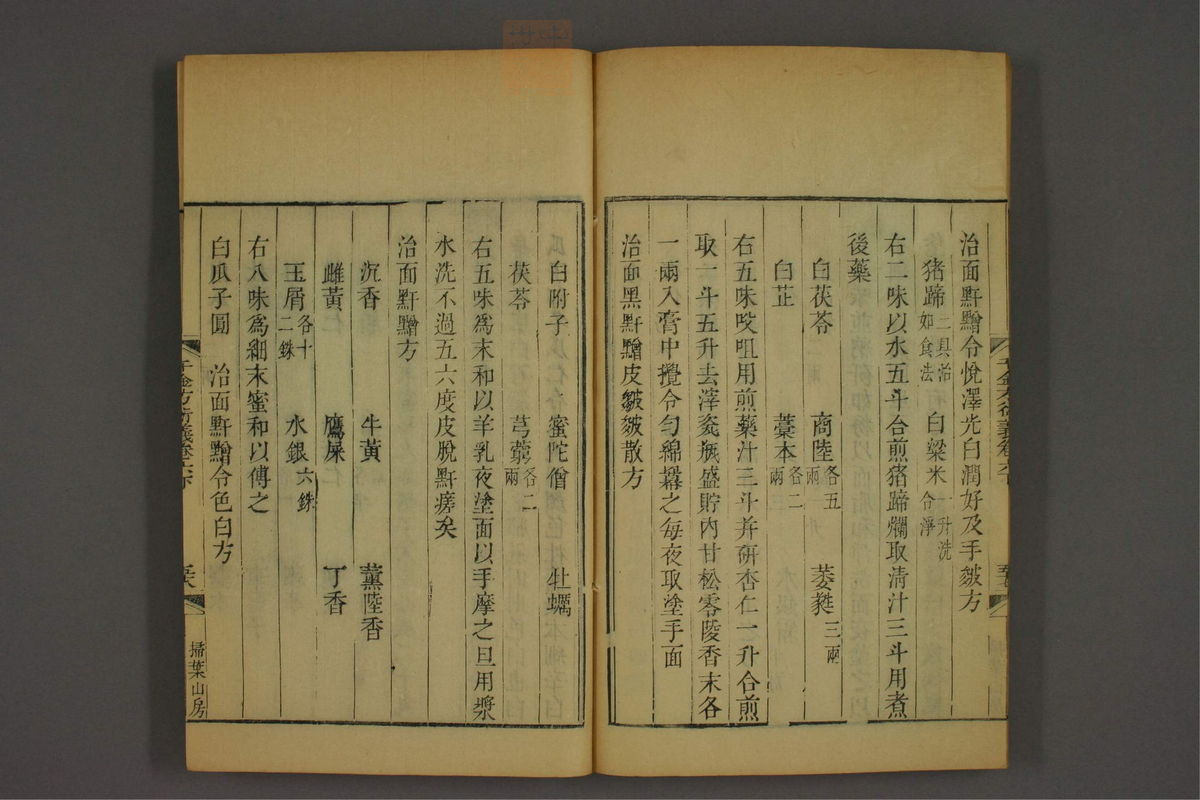 治面䵟䵴令悅澤光白潤好及手皴方
猪蹄二具治如食法 白粱米一升洗令淨
右二味以水五斗合煎猪蹄爛取清汁三斗用煮
後藥
白茯苓 商陸各五兩 葳蕤三兩
白芷 藁本各二兩
右五味㕮咀用煎藥汁三斗并研杏仁一升合煎
取一斗五升去滓瓷瓶盛貯内甘松零陵香末各
一兩入膏中攪令勻綿羃之每夜取塗手面
治面黑䵟䵴皮皺皴散方
白附子 蜜陀僧 牡蠣
茯苓 芎藭各二兩
右五味為末和以羊乳夜塗面以手摩之旦用漿
水洗不過五六度皮脫䵟瘥矣
治面䵟䵴方
沉香 牛黃 薰陸香
雌黃 鷹屎 丁香
玉屑各十二銖 水銀六銖
右八味為細末蜜和以傅之
白瓜子圓 治面䵟䵴令色白方
千金方衍義卷六下
掃葉山房